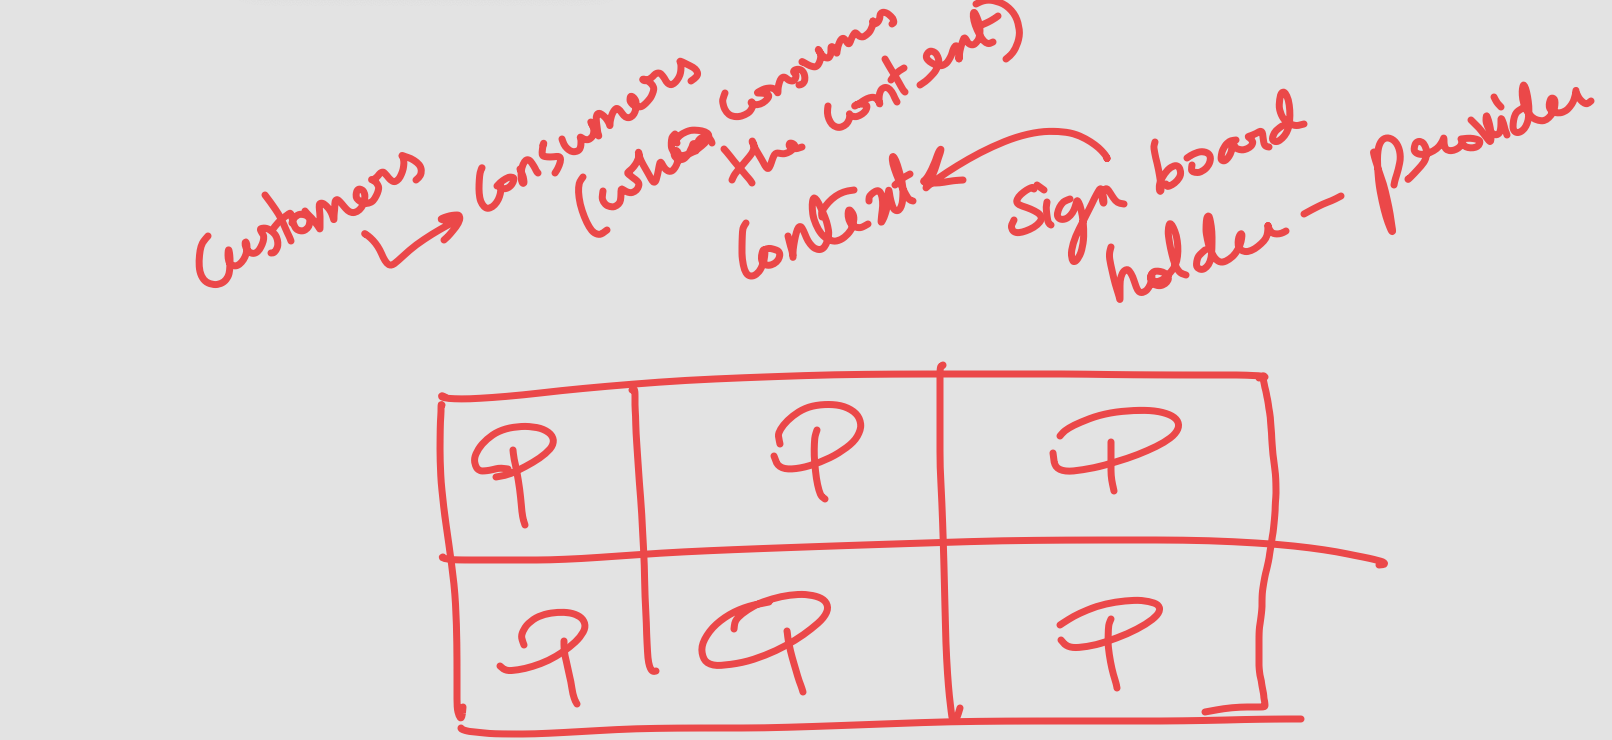 Customers
Consumers
(who consumes
the content)
Context
Sign board
holder - provider
P P P
P P P